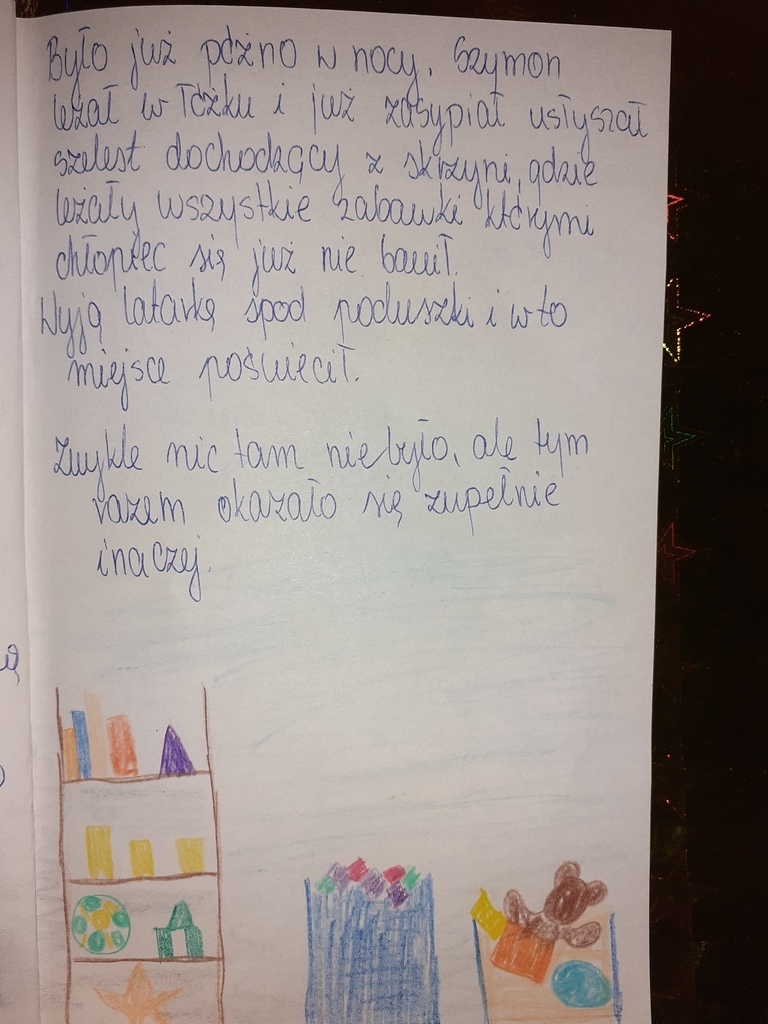 Było już późno w nocy. Szymon
leżał w łóżku i już zasypiał usłyszał
szelest dochodzący z skrzyni, gdzie
leżały wszystkie zabawki którymi
chłopiec się już nie bawił.
Wyją latarkę spod poduszki i w to
miejsce poświecił.
Zwykle nic tam nie było, ale tym
razem okazało się zupełnie
inaczej.